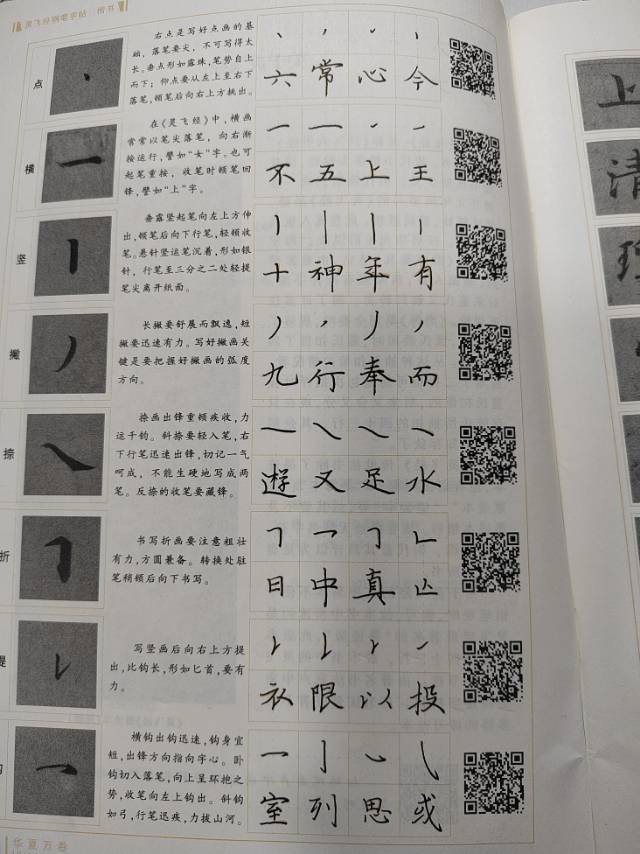 灵飞经钢笔字帖 楷书
点
右点是写好点画的基
础，落笔要尖，不可写得太
长。垂点形如露珠，笔势自上
而下；仰点要从左上至右下
落笔，顿笔后向右上方挑出。
六 常 心 今
横
在《灵飞经》中，横画
常常以笔尖落笔，向右渐
按运行，譬如“女”字。也可
起笔重按，收笔时顿笔回
锋，譬如“上”字。
不 五 上 王
竖
垂露竖起笔向左上方伸
出，顿笔后向下行笔，轻顿收
笔。悬针竖运笔沉着，形如银
针，行笔至三分之二处轻提
笔尖离开纸面。
十 神 年 有
撇
长撇要舒展而飘逸，短
撇要迅速有力。写好撇画关
键是要把握好撇画的弧度
方向。
九 行 奉 而
捺
捺画出锋重顿疾收，力
运千钧。斜捺要轻入笔，右
下行笔迅速出锋，切记一气
呵成，不能生硬地写成两
笔。反捺的收笔要藏锋。
遊 又 足 水
折
书写折画要注意粗壮
有力，方圆兼备。转换处驻
笔稍顿后向下书写。
日 中 真
提
写竖画后向右上方提
出，比钩长，形如匕首，要有
力。
限 以 投
横钩出钩迅速，钩身宜
短，出锋方向指向字心。卧
钩切入落笔，向上呈环抱之
势，收笔向左上钩出。斜钩
如弓，行笔迅疾，力拔山河。
室 列 思 或
华夏万卷
上
清